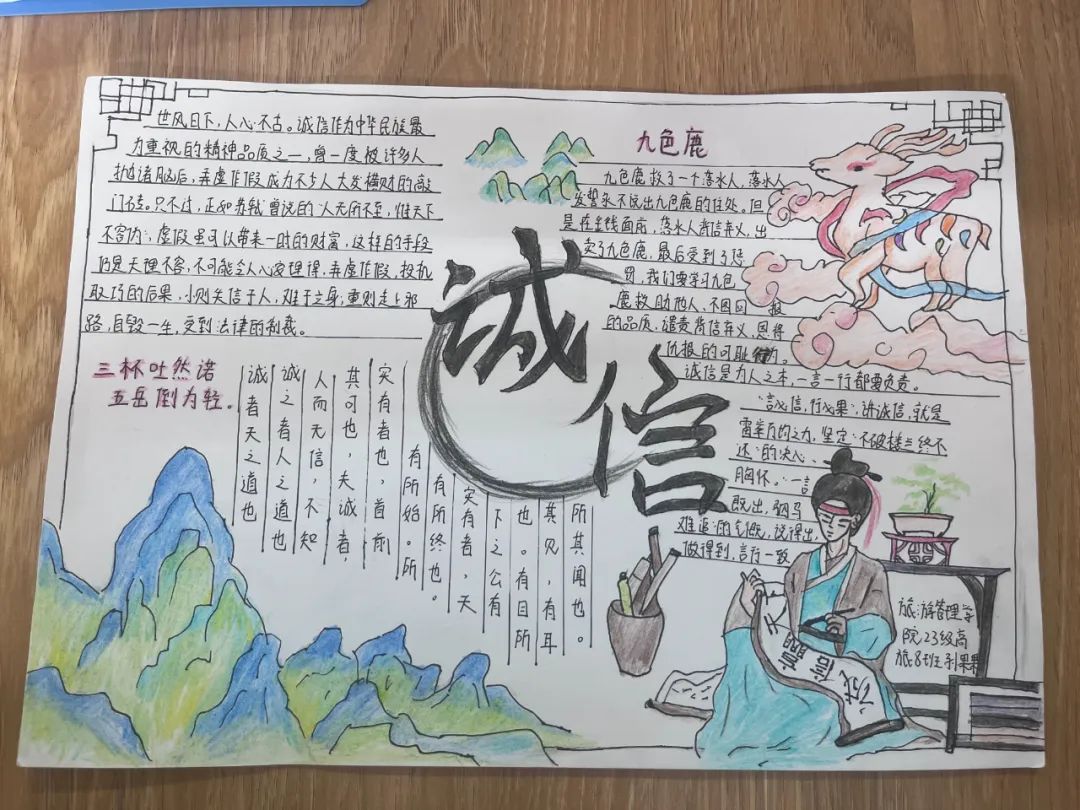 世风日下，人心不古。诚信作为中华民族最
为重视的精神品质之一，曾一度被许多人
抛诸脑后，弄虚作假成为不少人大发横财的敲
门砖。只不过，正如苏轼曾说的"人无所不至，惟天下
不容伪"，虚假虽可以带来一时的财富，这样的手段
仍是天理不容，不可能会人心安理得，弄虚作假，投机
取巧的后果，小则失信于人，难于立身；重则走上邪
路，自毁一生，受到法律的制裁。
三杯吐然诺
五岳倒为轻。
诚者天之道也
诚之者人之道也
人而无信，不知
其可也，夫诚者，
实有者也，首前
有所始。所
有所终也。
实有者，天
下之公有
也。有目所
其见，有耳
所其闻也。
诚
信
九色鹿
九色鹿救了一个落水人，落水人
发誓永不说出九色鹿的住处。但
是在金钱面前，落水人背信弃义，出
卖了九色鹿，最后受到了惩
罚，我们要学习九色
鹿救助他人，不图回报
的品质，谴责背信弃义，恩将
仇报的可耻行为。
诚信是为人之本，一言一行都要负责。
"言必信，行必果"，讲诚信，就是
雷霆万钧之力，坚定"不破楼兰终不
还"的决心、
胸怀。"一言
既出，驷马
难追"的气概，说得出，
做得到，言行一致
天
诚信
旅游管理学
院23级高
旅8班